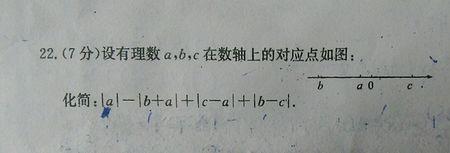 22.(7分)设有理数a,b,c在数轴上的对应点如图:
b a 0 c
化简:|a|-|b+a|+|c-a|+|b-c|.